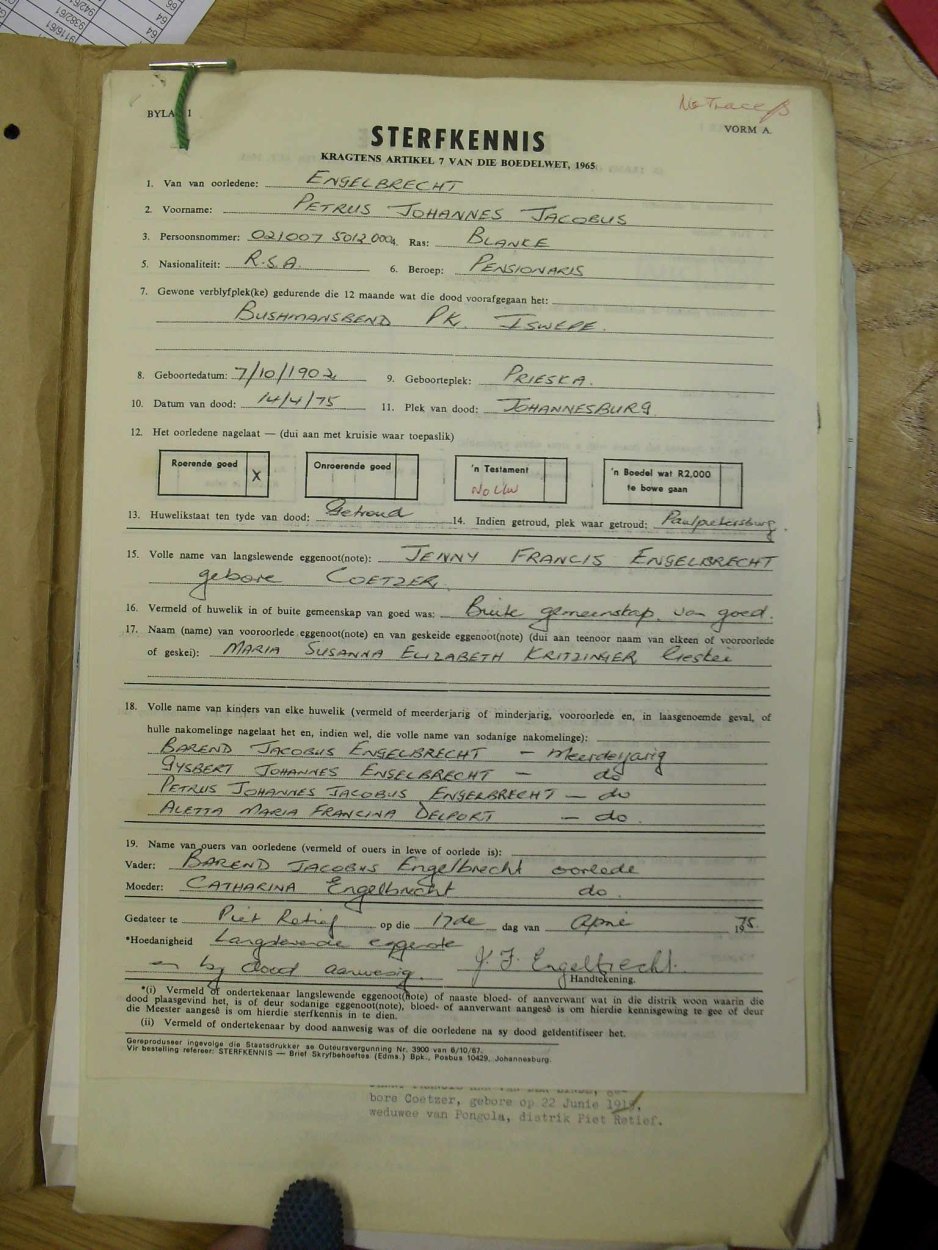 9116/61
9382/61
942/61
64
64
66
No Trace
BYLA 1
VORM A.
STERFKENNIS
KRAGTENS ARTIKEL 7 VAN DIE BOEDELWET, 1965
1. Van van oorledene: ENGELBRECHT
2. Voorname: PETRUS JOHANNES JACOBUS
3. Persoonsnommer: 021007 5012 004 4. Ras: BLANKE
5. Nasionaliteit: R.S.A. 6. Beroep: PENSIONARIS
7. Gewone verblyfplek(ke) gedurende die 12 maande wat die dood voorafgegaan het:
BUSHMANSBEND PK. ISWEPE.
8. Geboortedatum: 7/10/1902 9. Geboorteplek: PRIESKA.
10. Datum van dood: 14/4/75 11. Plek van dood: JOHANNESBURG
12. Het oorledene nagelaat — (dui aan met kruisie waar toepaslik)
Roerende goed X Onroerende goed 'n Testament 'n Boedel wat R2,000
te bowe gaan
13. Huwelikstaat ten tyde van dood: Getroud 14. Indien getroud, plek waar getroud: Paulpietersburg.
15. Volle name van langslewende eggenoot(note): JENNY FRANCIS ENGELBRECHT
gebore COETZER.
16. Vermeld of huwelik in of buite gemeenskap van goed was: Buite gemeenskap van goed.
17. Naam (name) van vooroorlede eggenoot(note) en van geskeide eggenoot(note) (dui aan teenoor naam van elkeen of vooroorlede
of geskei): MARIA SUSANNA ELIZABETH KRITZINGER Geskei
18. Volle name van kinders van elke huwelik (vermeld of meerderjarig of minderjarig, vooroorlede en, in laasgenoemde geval, of
hulle nakomelinge nagelaat het en, indien wel, die volle name van sodanige nakomelinge):
BAREND JACOBUS ENGELBRECHT - Meerderjarig
GYSBERT JOHANNES ENGELBRECHT - do
PETRUS JOHANNES JACOBUS ENGELBRECHT - do
ALETTA MARIA FRANCINA DELPORT - do.
19. Name van ouers van oorledene (vermeld of ouers in lewe of oorlede is):
Vader: BAREND JACOBUS Engelbrecht oorlede
Moeder: CATHARINA Engelbrecht do.
Gedateer te Piet Retief op die 17de dag van April 1975.
*Hoedanigheid Langslewende eggenote
en by dood aanwesig. J. F. Engelbrecht.
Handtekening.
*(i) Vermeld of ondertekenaar langslewende eggenoot(note) of naaste bloed- of aanverwant wat in die distrik woon waarin die
dood plaasgevind het, is of deur sodanige eggenoot(note), bloed- of aanverwant aangesê is om hierdie kennisgewing te gee of deur
die Meester aangesê is om hierdie sterfkennis in te dien.
(ii) Vermeld of ondertekenaar by dood aanwesig was of die oorledene na sy dood geïdentifiseer het.
Gereproduseer ingevolge die Staatsdrukker se Outeursvergunning Nr. 3900 van 6/10/67.
Vir bestelling refereer: STERFKENNIS — Brief Skryfbehoeftes (Edms.) Bpk., Posbus 10429, Johannesburg.
bore Coetzer, gebore op 22 Junie
weduwee van Pongola, distrik Piet Retief.